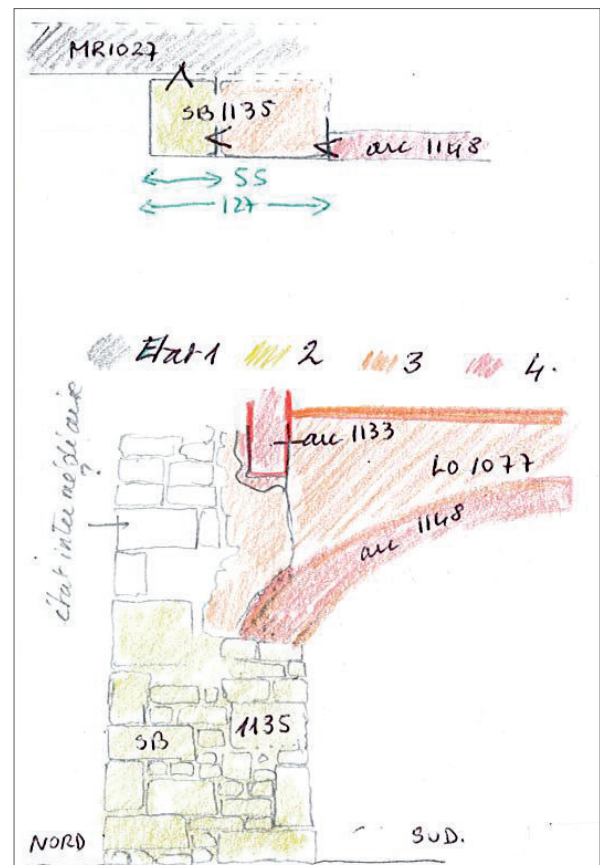 MR1027
SB 1135
arc 1148
55
127
Etat 1 2 3 4.
état intermédiaire ?
arc 1133
LO 1077
arc 1148
1135
SB
NORD SUD.